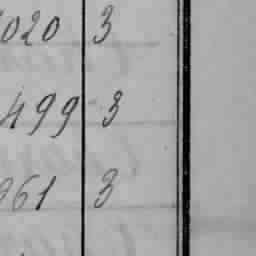 020 3
499 3
961 3